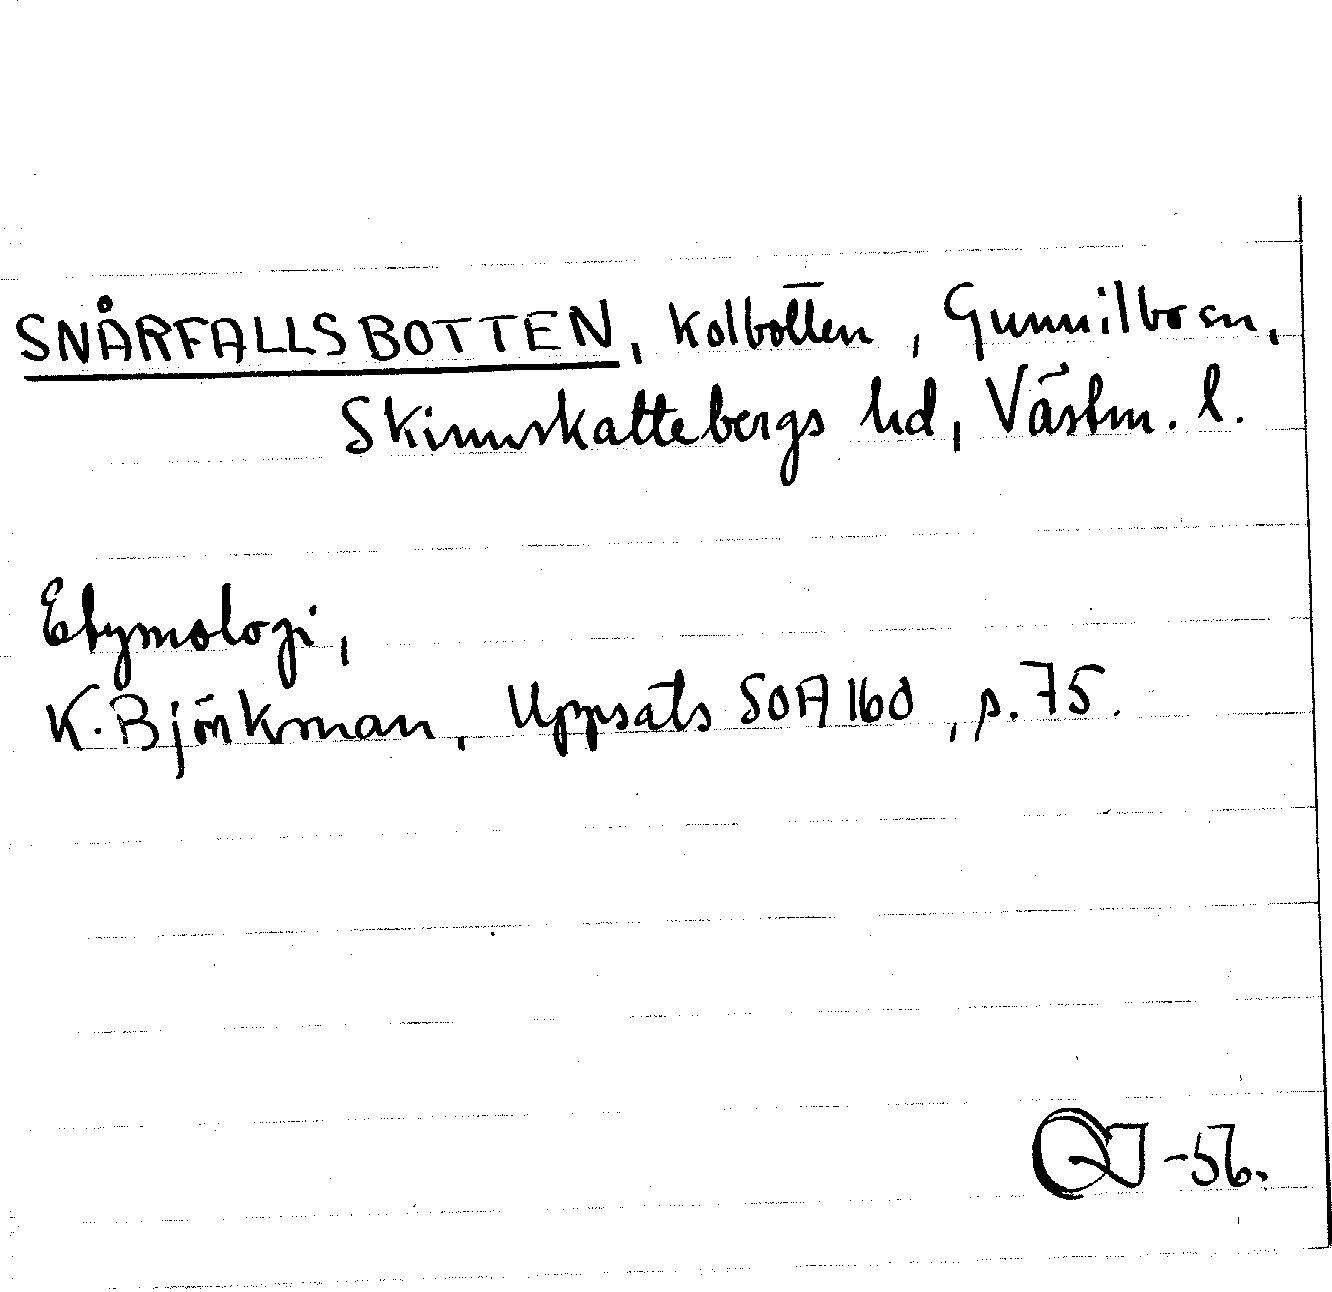 SNÅRFALLSBOTTEN, kolbotten, Gunnilbosn,
Skinnskattebergs hd, Västm. l.
Etymologi,
K. Björkman, Uppsats SOA 160, p. 75.
-56.